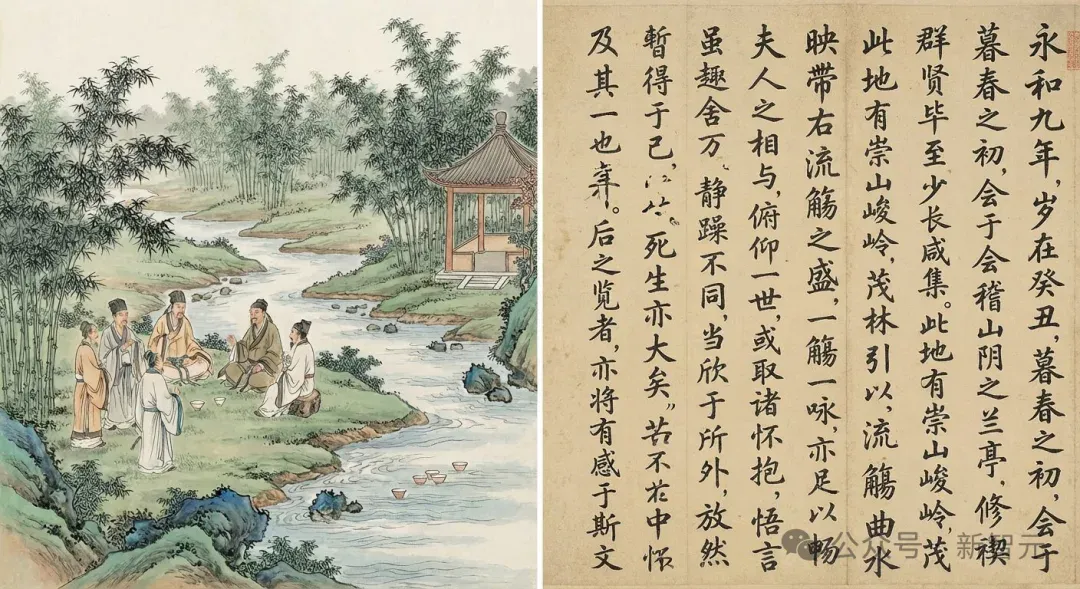 永和九年,岁在癸丑,暮春之初,会于
暮春之初,会于会稽山阴之兰亭、修禊
群贤毕至少长咸集。此地有崇山峻岭,茂
此地有崇山峻岭,茂林引以,流觞曲水
映带右流觞之盛,一觞一咏,亦足以畅
夫人之相与,俯仰一世,或取诸怀抱,悟言
虽趣舍万、静躁不同,当欣于所外,放然
暂得于己,死生亦大矣。"苦不於中怀
及其一也。后之览者,亦将有感于斯文
公众号 新智元